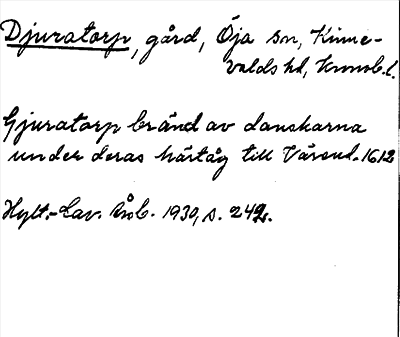 Djuratorp, gård, Öja sn, Kinne-
valds hd, Kronob. l.
Gjuratorp bränd av danskarna
under deras härtåg till Värend. 1612
Hylt.-Cav. Årsb. 1930, s. 242.